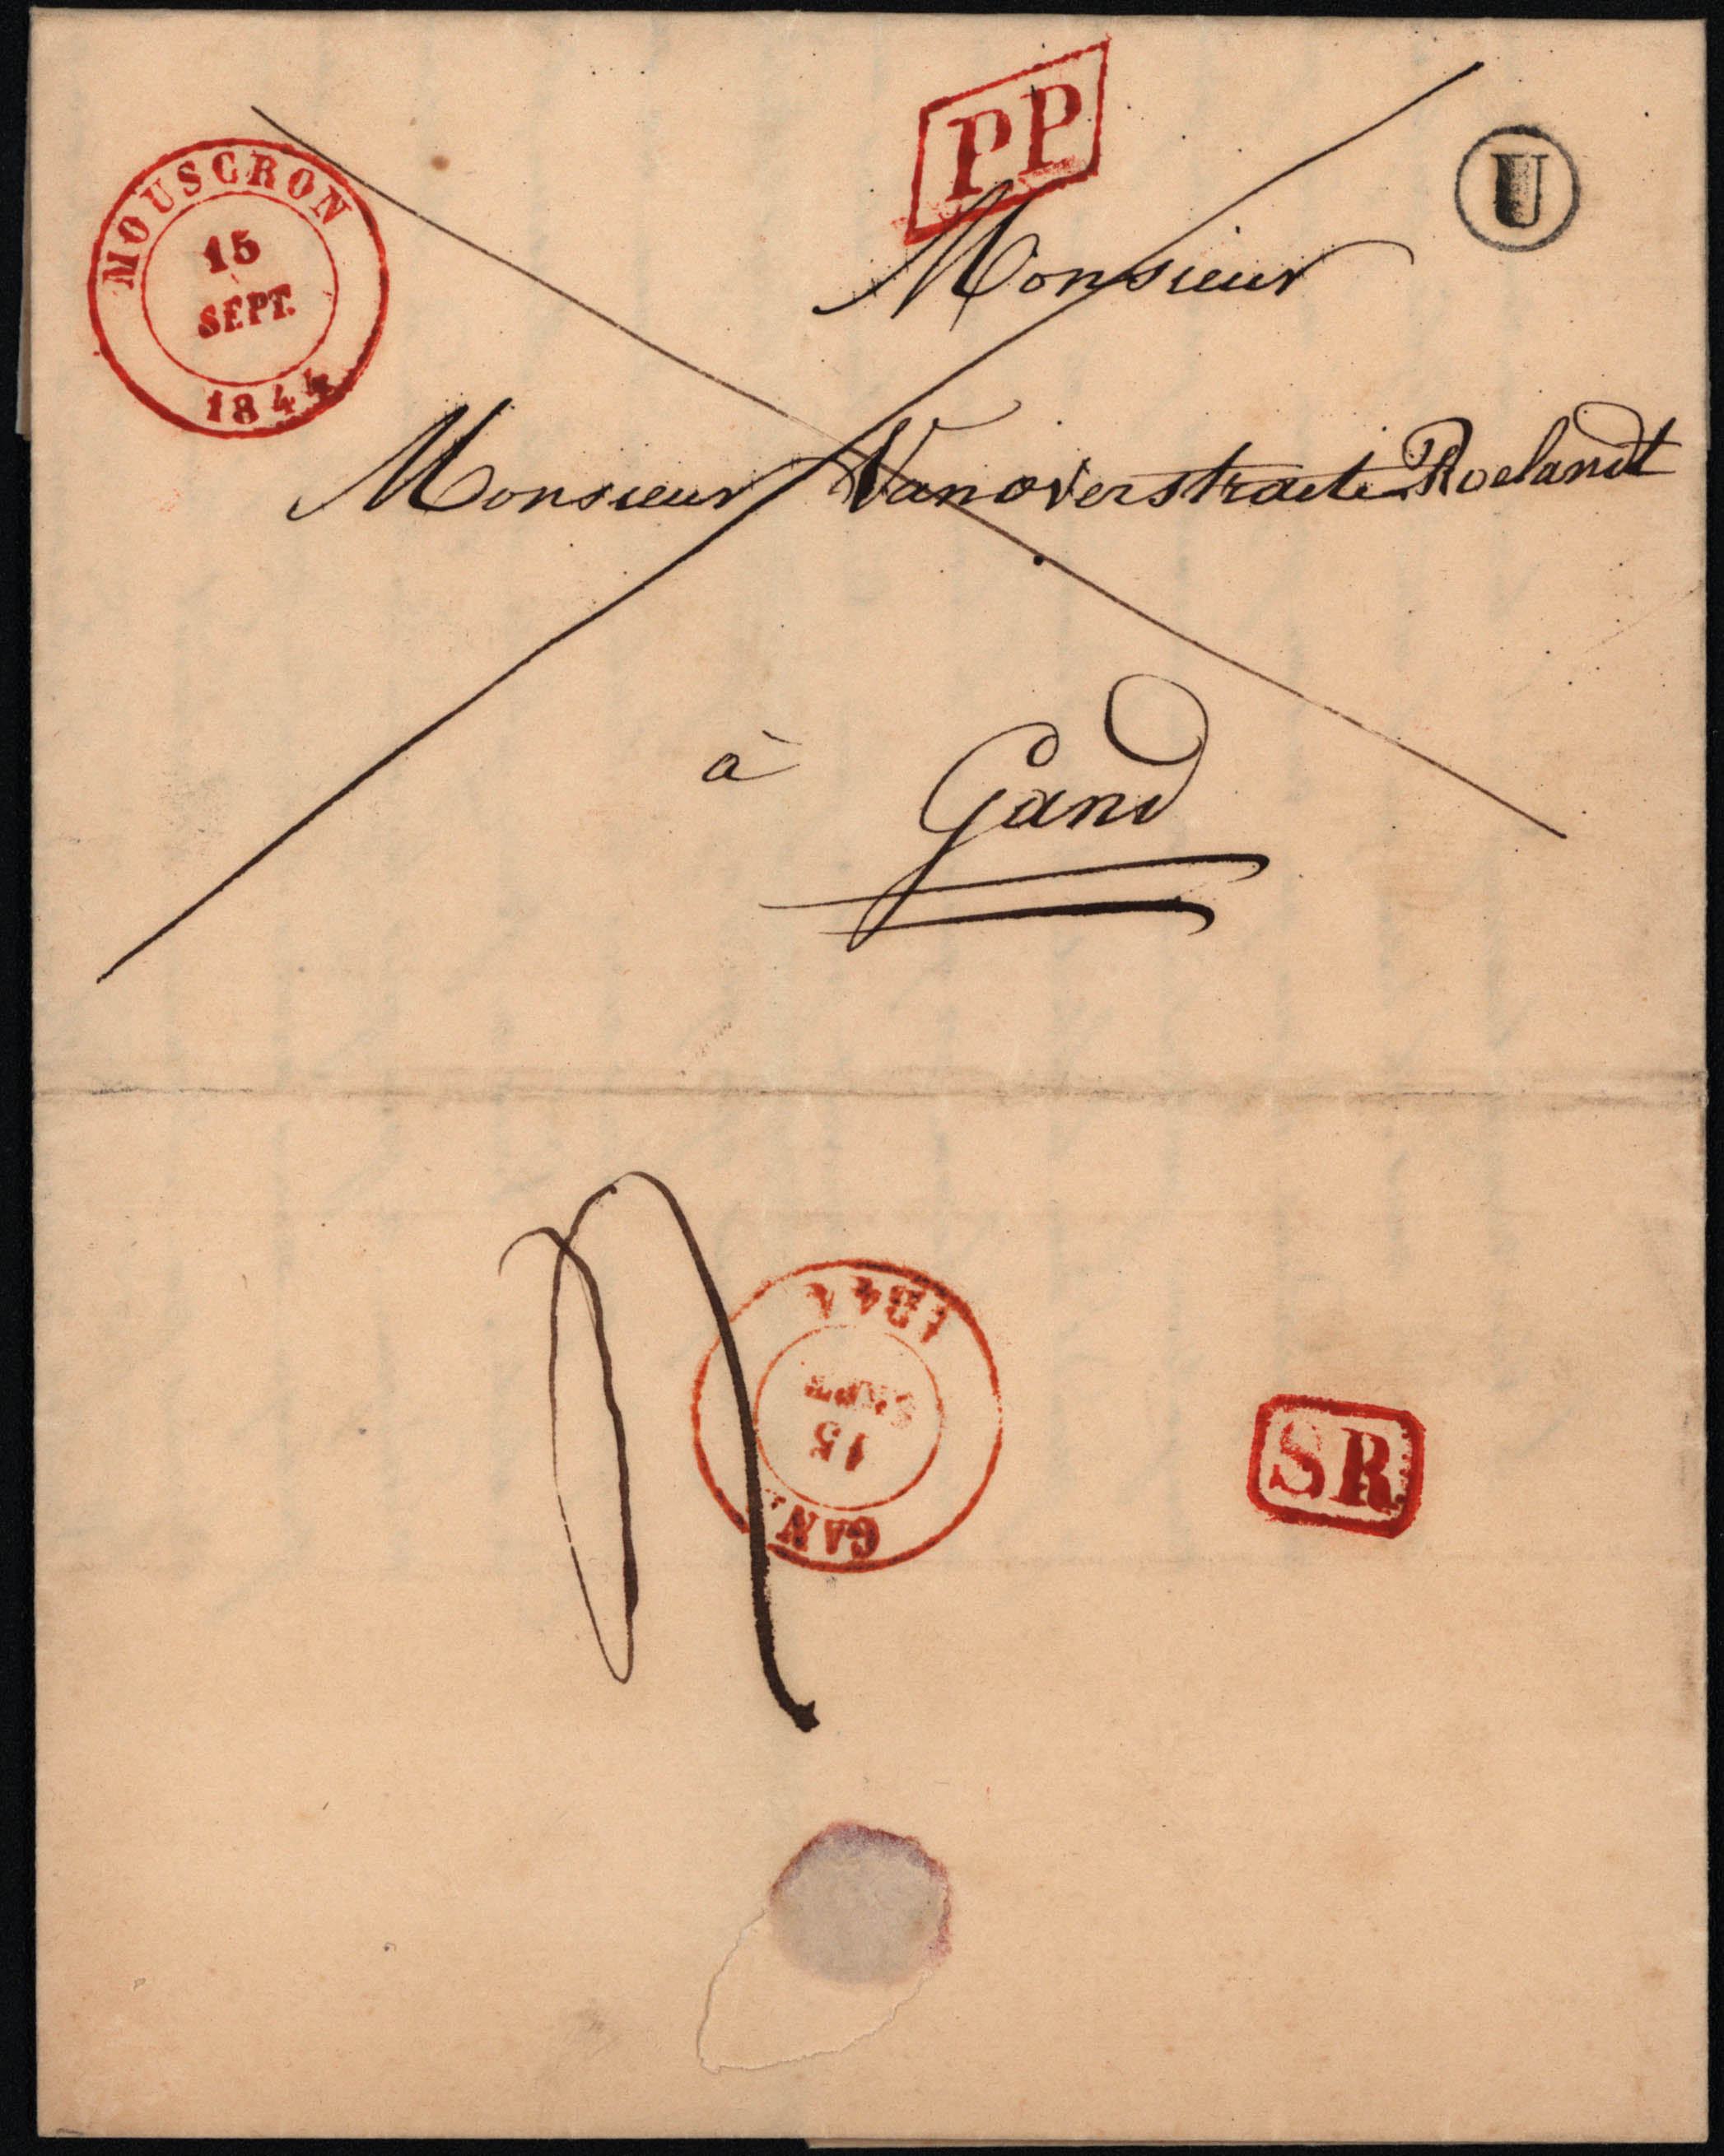 MOUSCRON
15
SEPT.
1844
PP
U
Monsieur
Monsieur Vanoverstraete Roelandt
à
Gand
1844
SEPT
15
GAN
SR